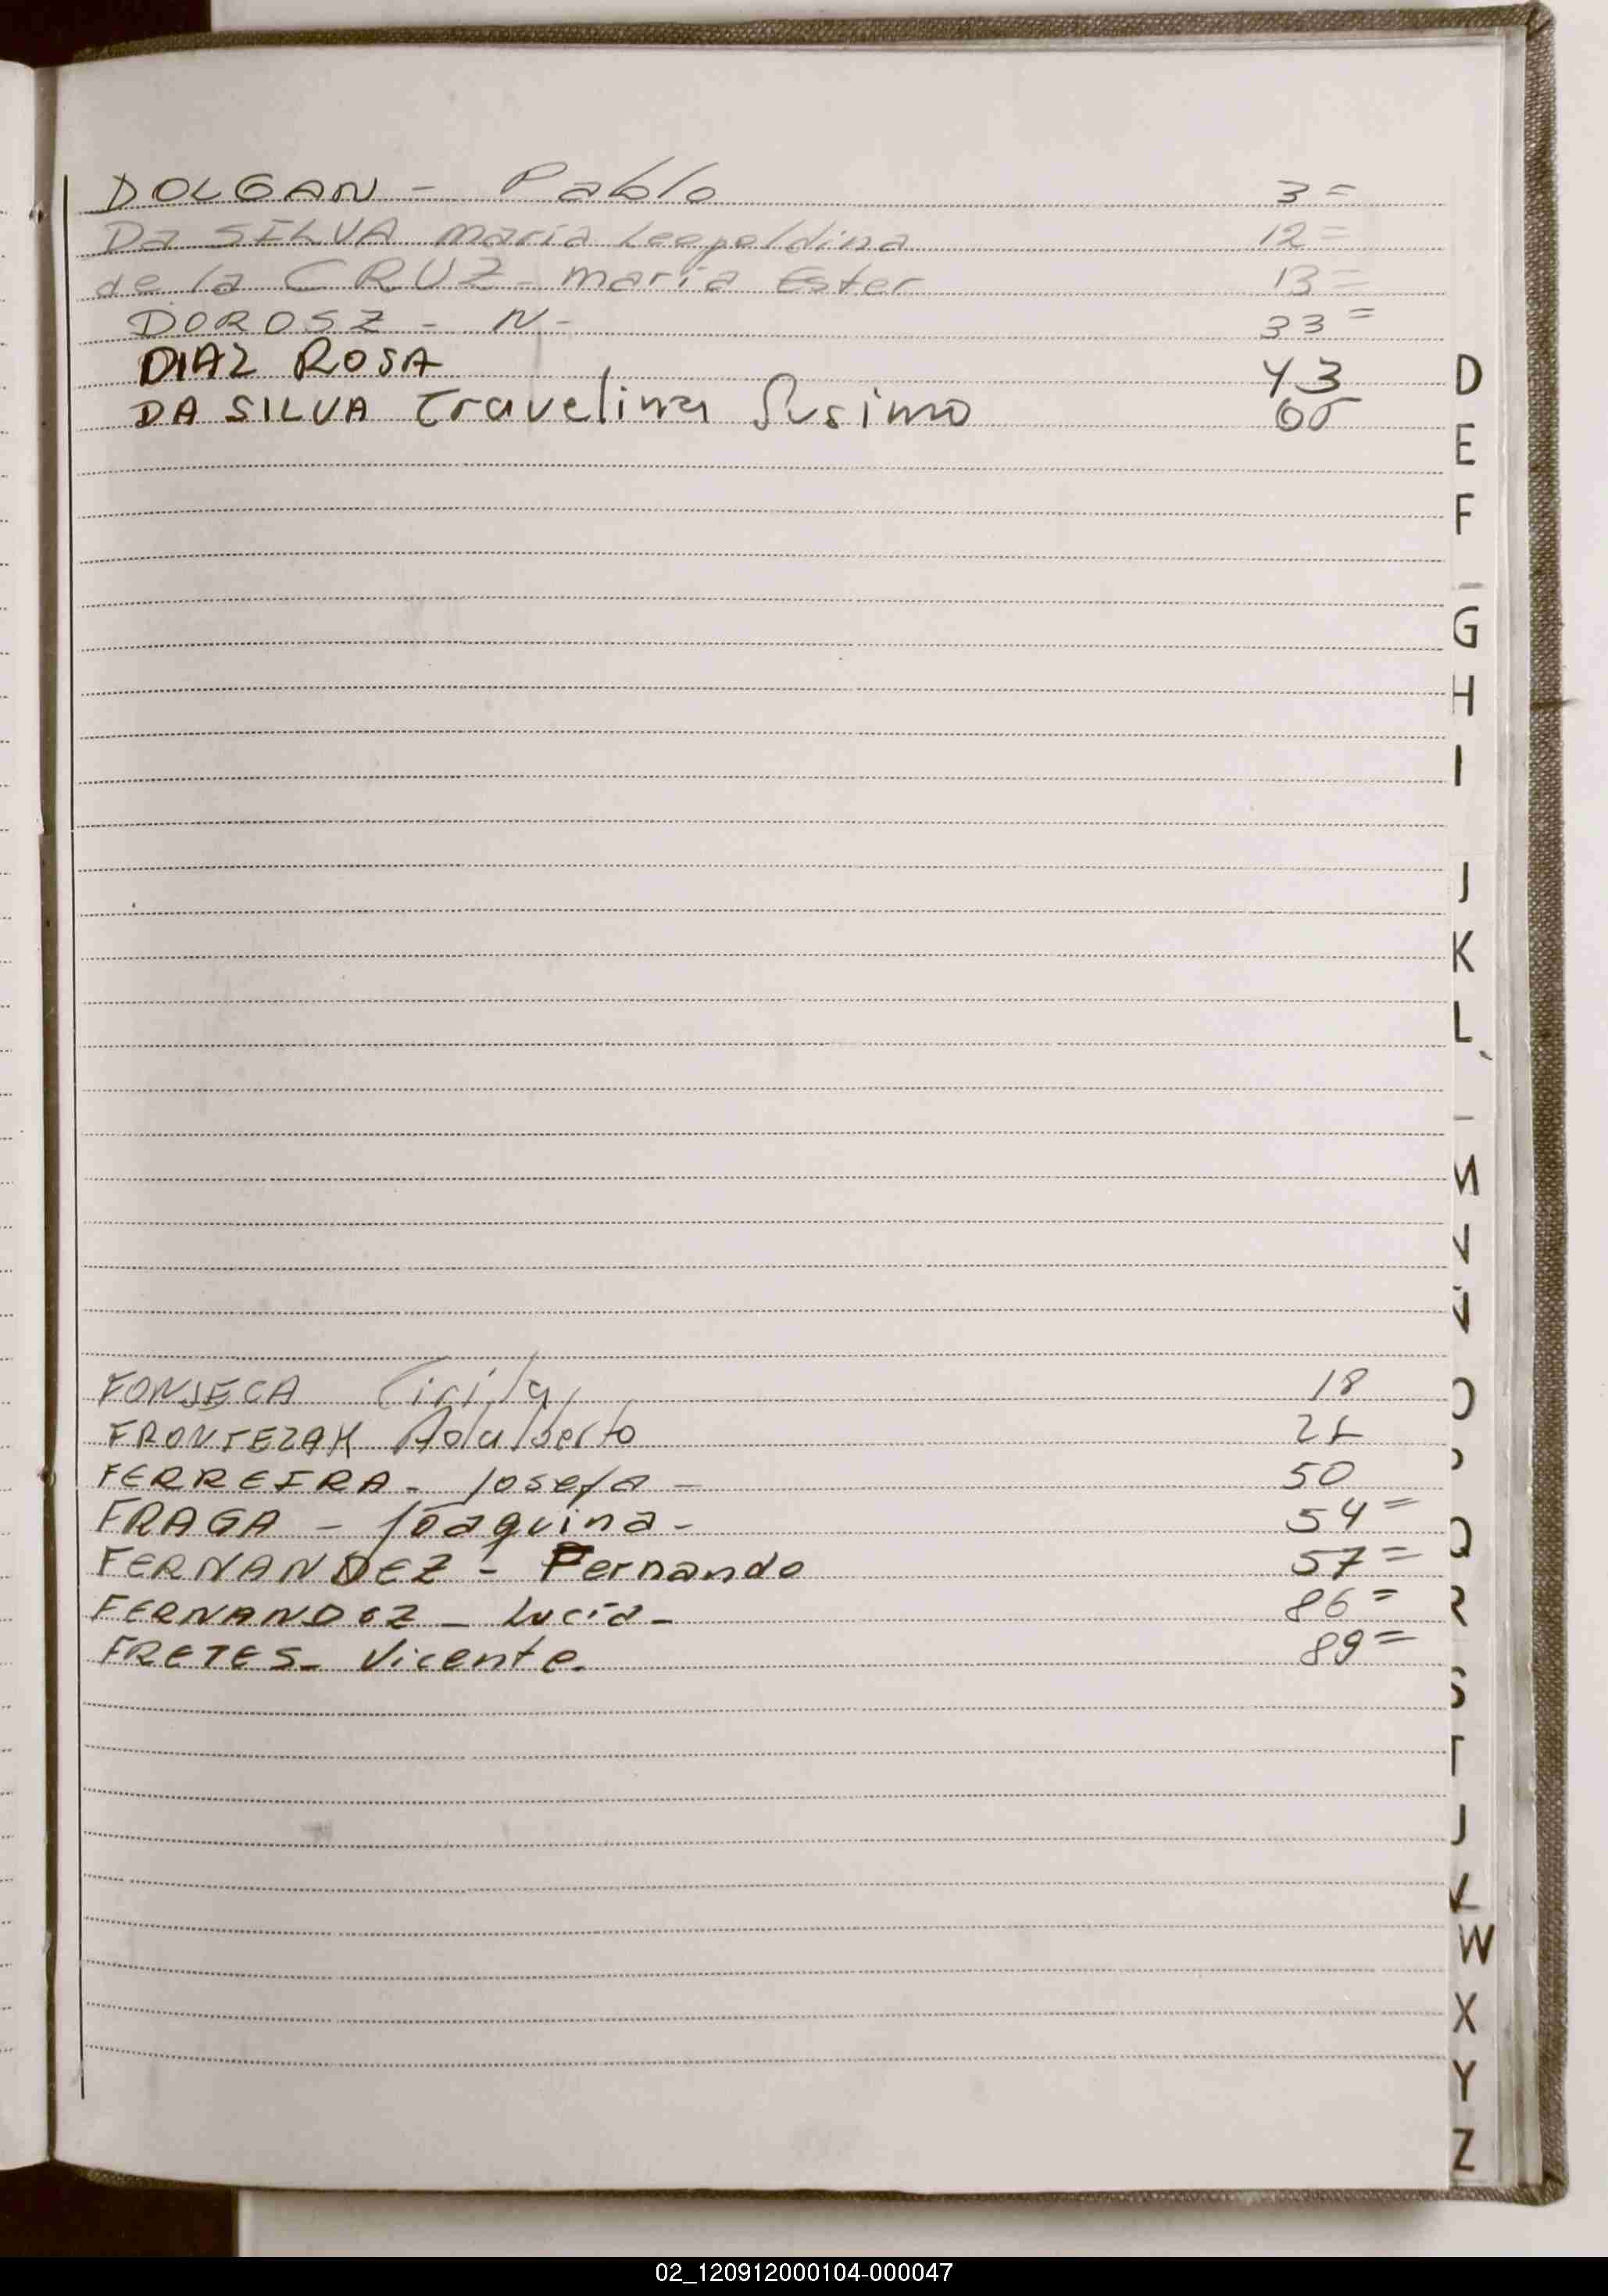 DOLGAN - Pablo 3=
Da SILVA maria Leopoldina 12=
de la CRUZ - maria Ester 13=
DOROSZ - N- 33=
DIAZ ROSA 43
DA SILVA
FONSECA Cirila 18
FRONTEZAK Adalberto
FERREIRA - Josefa - 50
FRAGA - Joaquina - 54=
FERNANDEZ - Fernando 57=
FERNANDEZ - Lucia - 86=
FRETES - Vicente. 89=
D
E
F
G
H
I
J
K
L
M
N
Ñ
O
P
Q
R
S
T
W
X
Y
Z
02_120912000104-000047